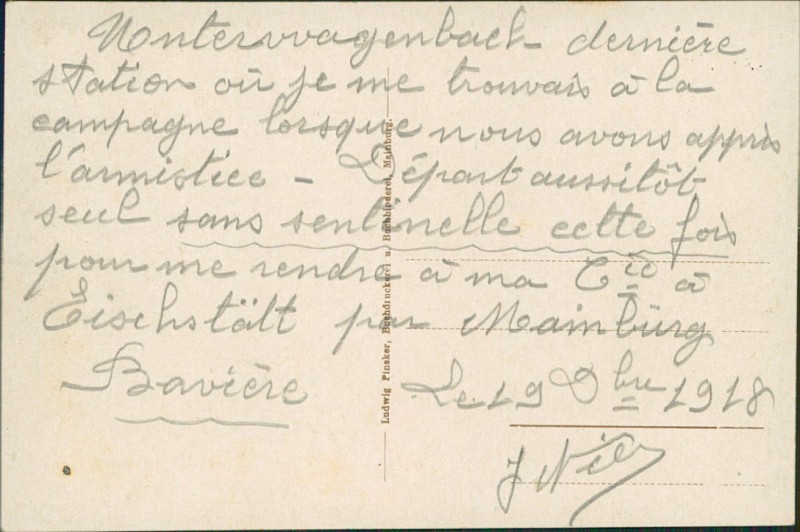 Unterwagenbach dernière
station où je me trouvais à la
campagne lorsque nous avons appris
l'armistice - Départ aussitôt
seul sans sentinelle cette fois
pour me rendre à ma Cie à
Eischstält par Mainbürg
Bavière
Le 19 Dbre 1918
Ludwig Pinsker, Buchdruckerei u. Buchbinderei, Mainburg.